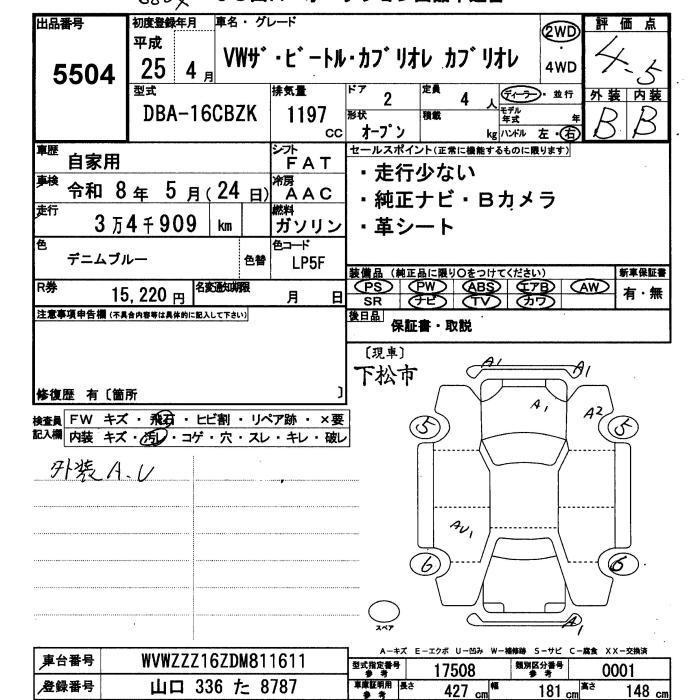 出品番号
5504
初度登録年月
平成
25 4月
車名・グレード
VWザ・ビートル・カブリオレ カブリオレ
2WD
・
4WD
評価点
4-5
外装 内装
B B
型式
DBA-16CBZK
排気量
1197
cc
ドア
2
定員
4 人
ディーラー・並行
モデル年式 年
形状
オープン
積載
kg
ハンドル 左・右
車歴
自家用
シフト
FAT
車検
令和 8年 5月(24日)
冷房
AAC
走行
3万4千909 km
燃料
ガソリン
色
デニムブルー
色替
色コード
LP5F
R券
15,220円
名変通知期限
月 日
セールスポイント(正常に機能するものに限ります)
・走行少ない
・純正ナビ・Bカメラ
・革シート
装備品(純正品に限り○をつけてください)
PS PW ABS エアB AW
SR ナビ TV カワ
新車保証書
有・無
後日品
保証書・取説
注意事項申告欄(不具合内容等は具体的に記入して下さい)
修復歴 有〔箇所 〕
検査員記入欄
FW キズ・飛石・ヒビ割・リペア跡・×要
内装 キズ・汚レ・コゲ・穴・スレ・キレ・破レ
外装 A.U
〔現車〕
下松市
A1 A1
A1
A2
5 5
AU1
6 6
A1
スペア
A-キズ E-エクボ U-凹み W-補修跡 S-サビ C-腐食 XX-交換済
車台番号
WVWZZZ16ZDM811611
登録番号
山口 336 た 8787
型式指定番号
参考
17508
類別区分番号
参考
0001
車庫証明用
参考
長さ
427 cm
幅
181 cm
高さ
148 cm